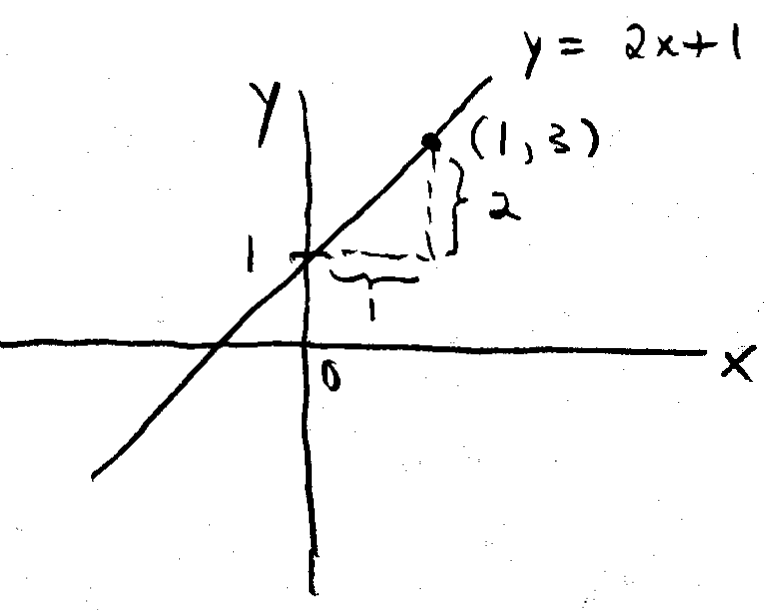 y = 2x+1
y
(1,3)
2
1
1
0
x